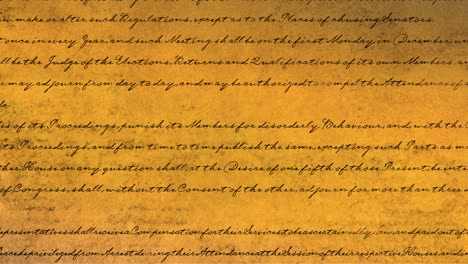 make or alter such Regulations, except as to the Places of chusing Senators
once in every Year, and such Meeting shall be on the first Monday in December, un
ll be the Judge of the Elections, Returns and Qualifications of its own Members, a
may adjourn from day to day, and may be authorized to compel the Attendance of a
le.
es of its Proceedings, punish its Members for disorderly Behaviour, and, with the C
ts Proceedings, and from time to time publish the same, excepting such Parts as m
the House on any question shall, at the Desire of one fifth of those Present, be inte
of Congress, shall, without the Consent of the other, adjourn for more than three
epresentatives shall receive a Compensation for their Services, to be ascertained by Law, and paid out of
ace, be privileged from Arrest during their Attendance at the Session of their respective Houses, and